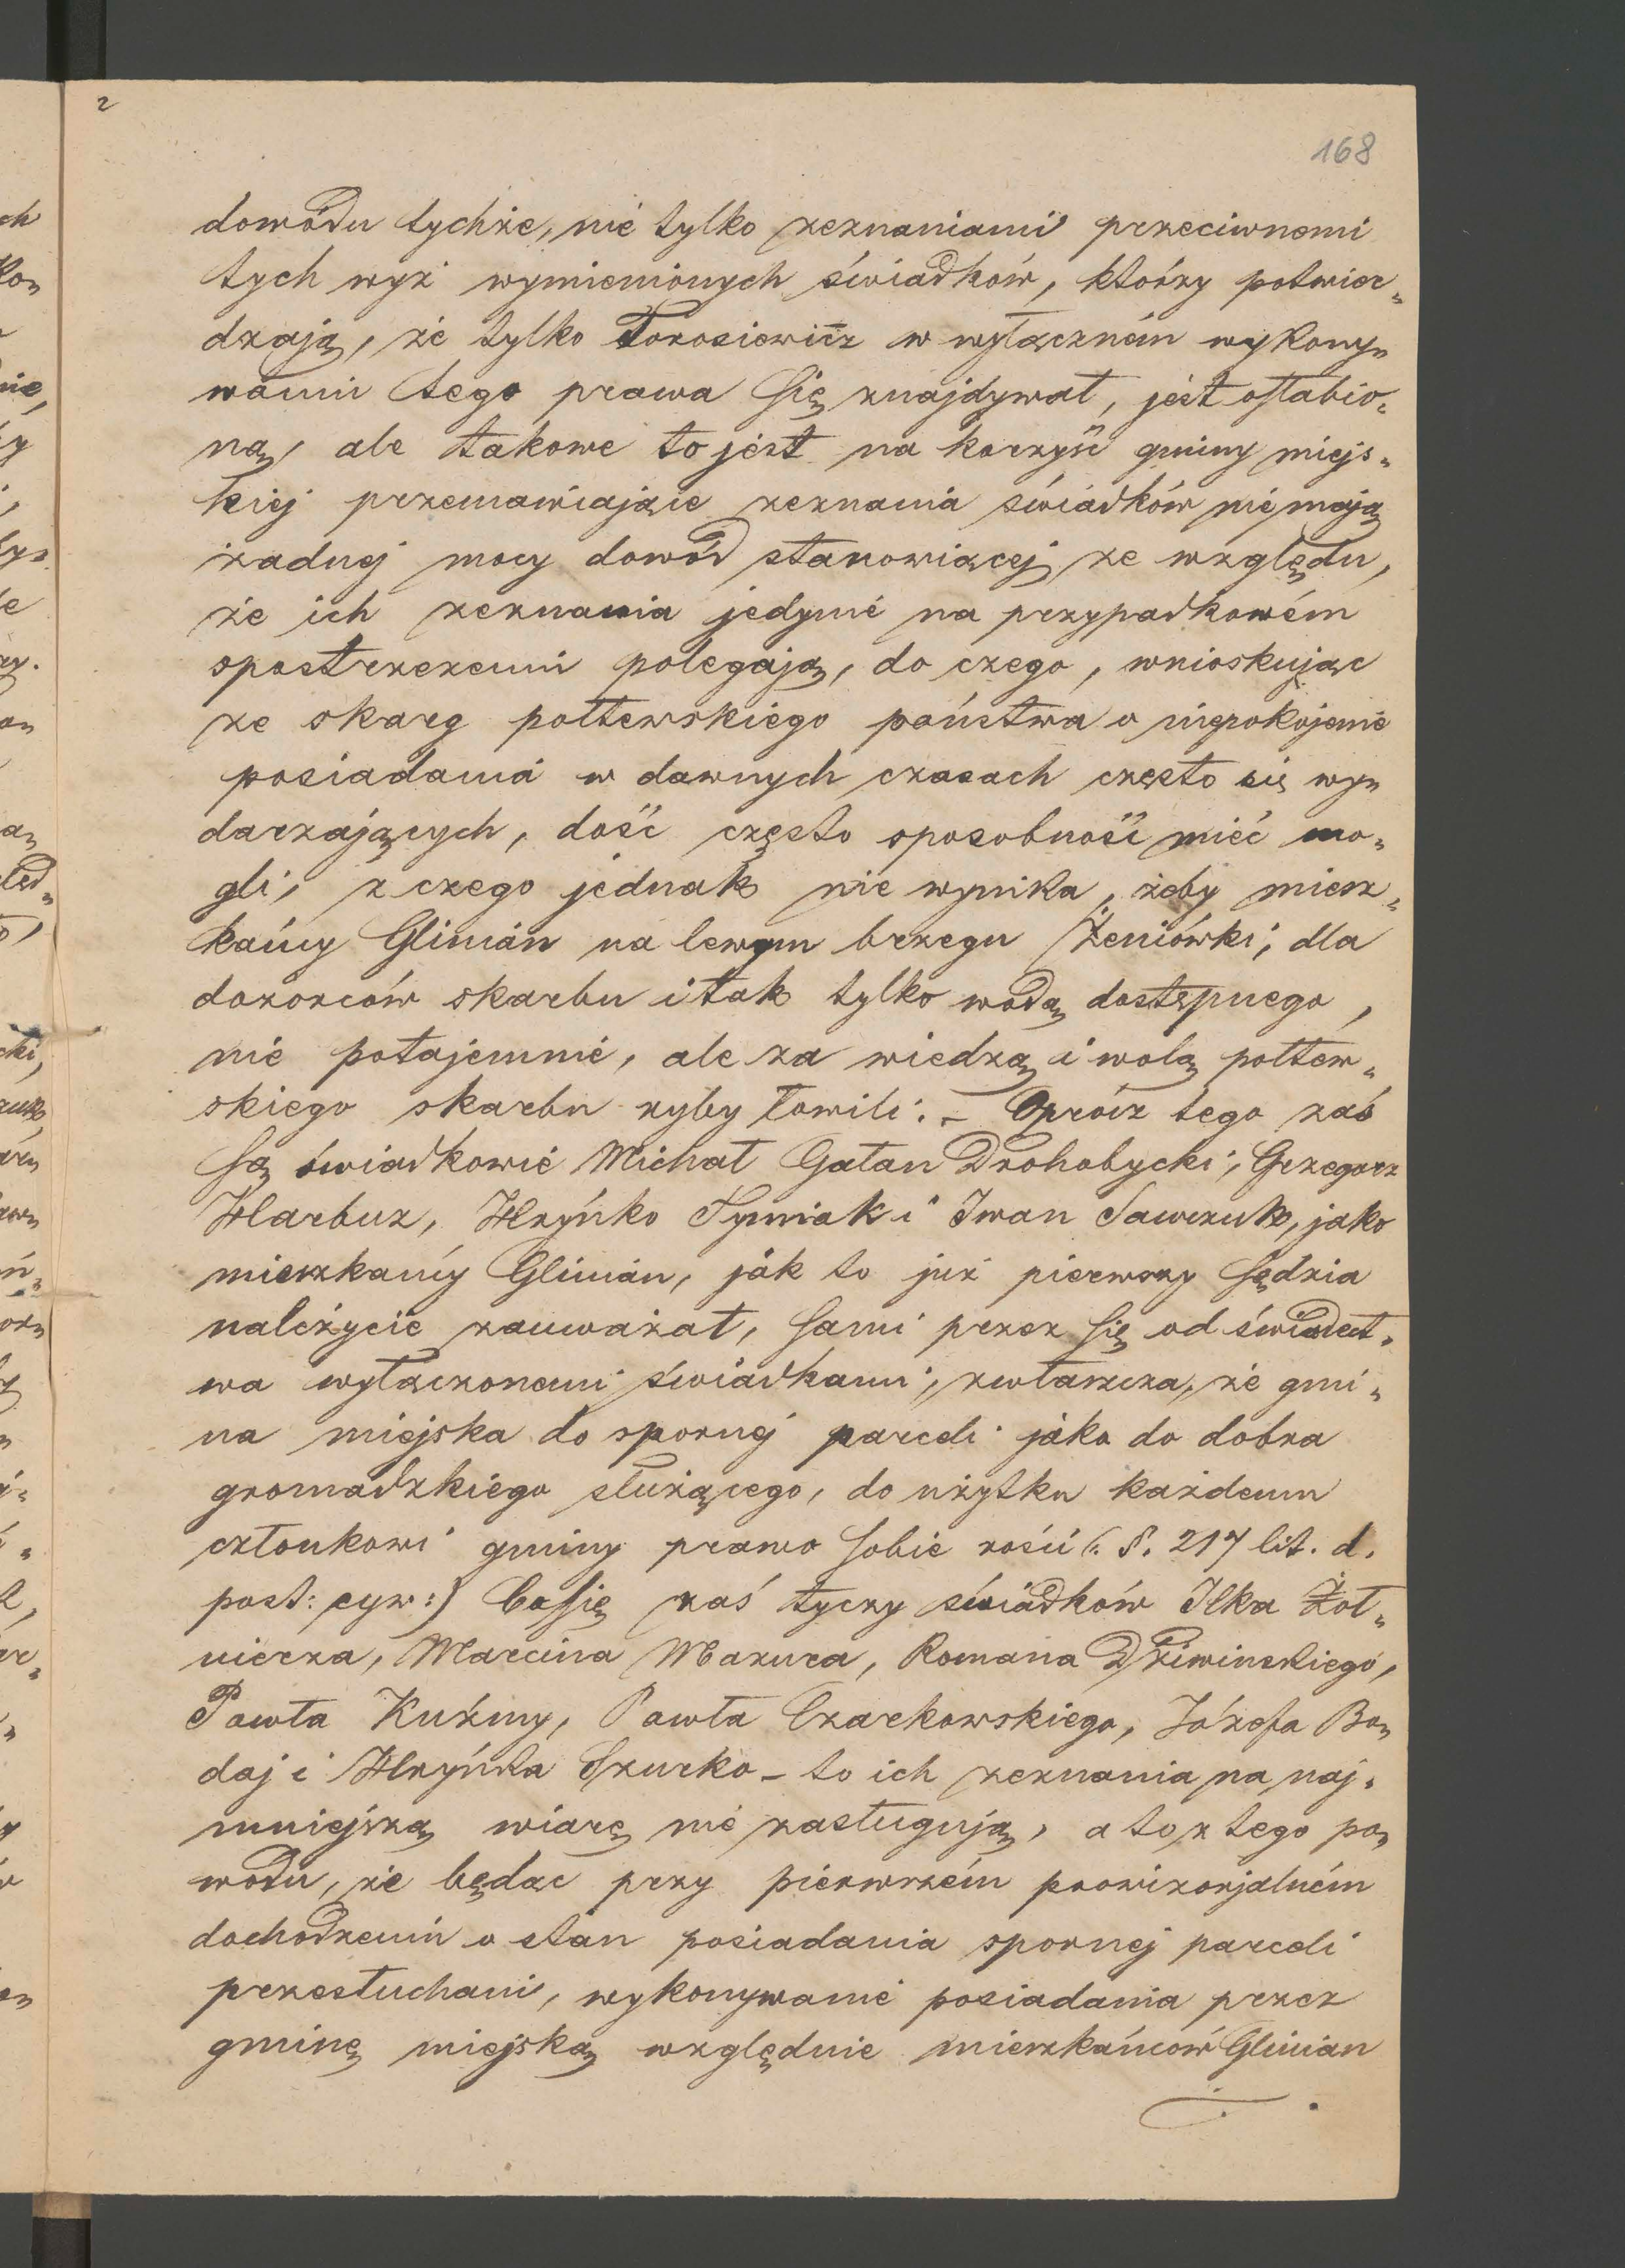 2
168
dowodu tychże, nie tylko zeznaniami przeciwnemi
tych wyż wymienionych świadków, którzy potwier„
dzają, że tylko Torosiewicz w wyłączném wykony„
waniu tego prawa się znajdywał, jest osłabio„
ną, ale takowe to jest na korzyść gminy miejs„
kiej przemawiające zeznania świadków nie mają
żadnej mocy dowód stanowiącej ze względu,
że ich zeznania jedynie na przypadkowém
spostrzeżeniu polegają, do czego, wnioskując
ze skarg połtewskiego państwa o niepokojenie
posiadania w dawnych czasach często się wy„
darzających, dość często sposobność mieć mo„
gli, z czego jednak nie wynika, żeby miesz„
kańcy Glinian na lewym brzegu Żeniówki, dla
dozorców skarbu i tak tylko wodą dostępnego,
nie potajemnie, ale za wiedzą i wolą połtew„
skiego skarbu ryby łowili. – Oprócz tego zaś
są świadkowie Michał Gałan Drohobycki, Grzegorz
Harbuz, Hryńko Symiak i Iwan Sawczuk, jako
mieszkańcy Glinian, jak to już pierwszy sędzia
należycie zauważał, sami przez się od świadect„
wa wyłączonemi świadkami, zwłaszcza, że gmi„
na miejska do spornej parceli jako do dobra
gromadzkiego służącego, do użytku każdemu
członkowi gminy prawo sobie rości (: §. 217 lit. d.
post: cyw:) Co się zaś tyczy świadków Ilka Żoł„
nierza, Marcina Mazura, Romana Dziwinskiego,
Pawła Kuźmy, Pawła Czarkowskiego, Józefa Bon„
daj i Hryńka Szurko – to ich zeznania na naj„
mniejszą wiarę nie zasługują, a to z tego po„
wodu, że będąc przy pierwszém prowizorjalném
dochodzeniu o stan posiadania spornej parceli
przesłuchani, wykonywanie posiadania przez
gminę miejską względnie mieszkańców Glinian